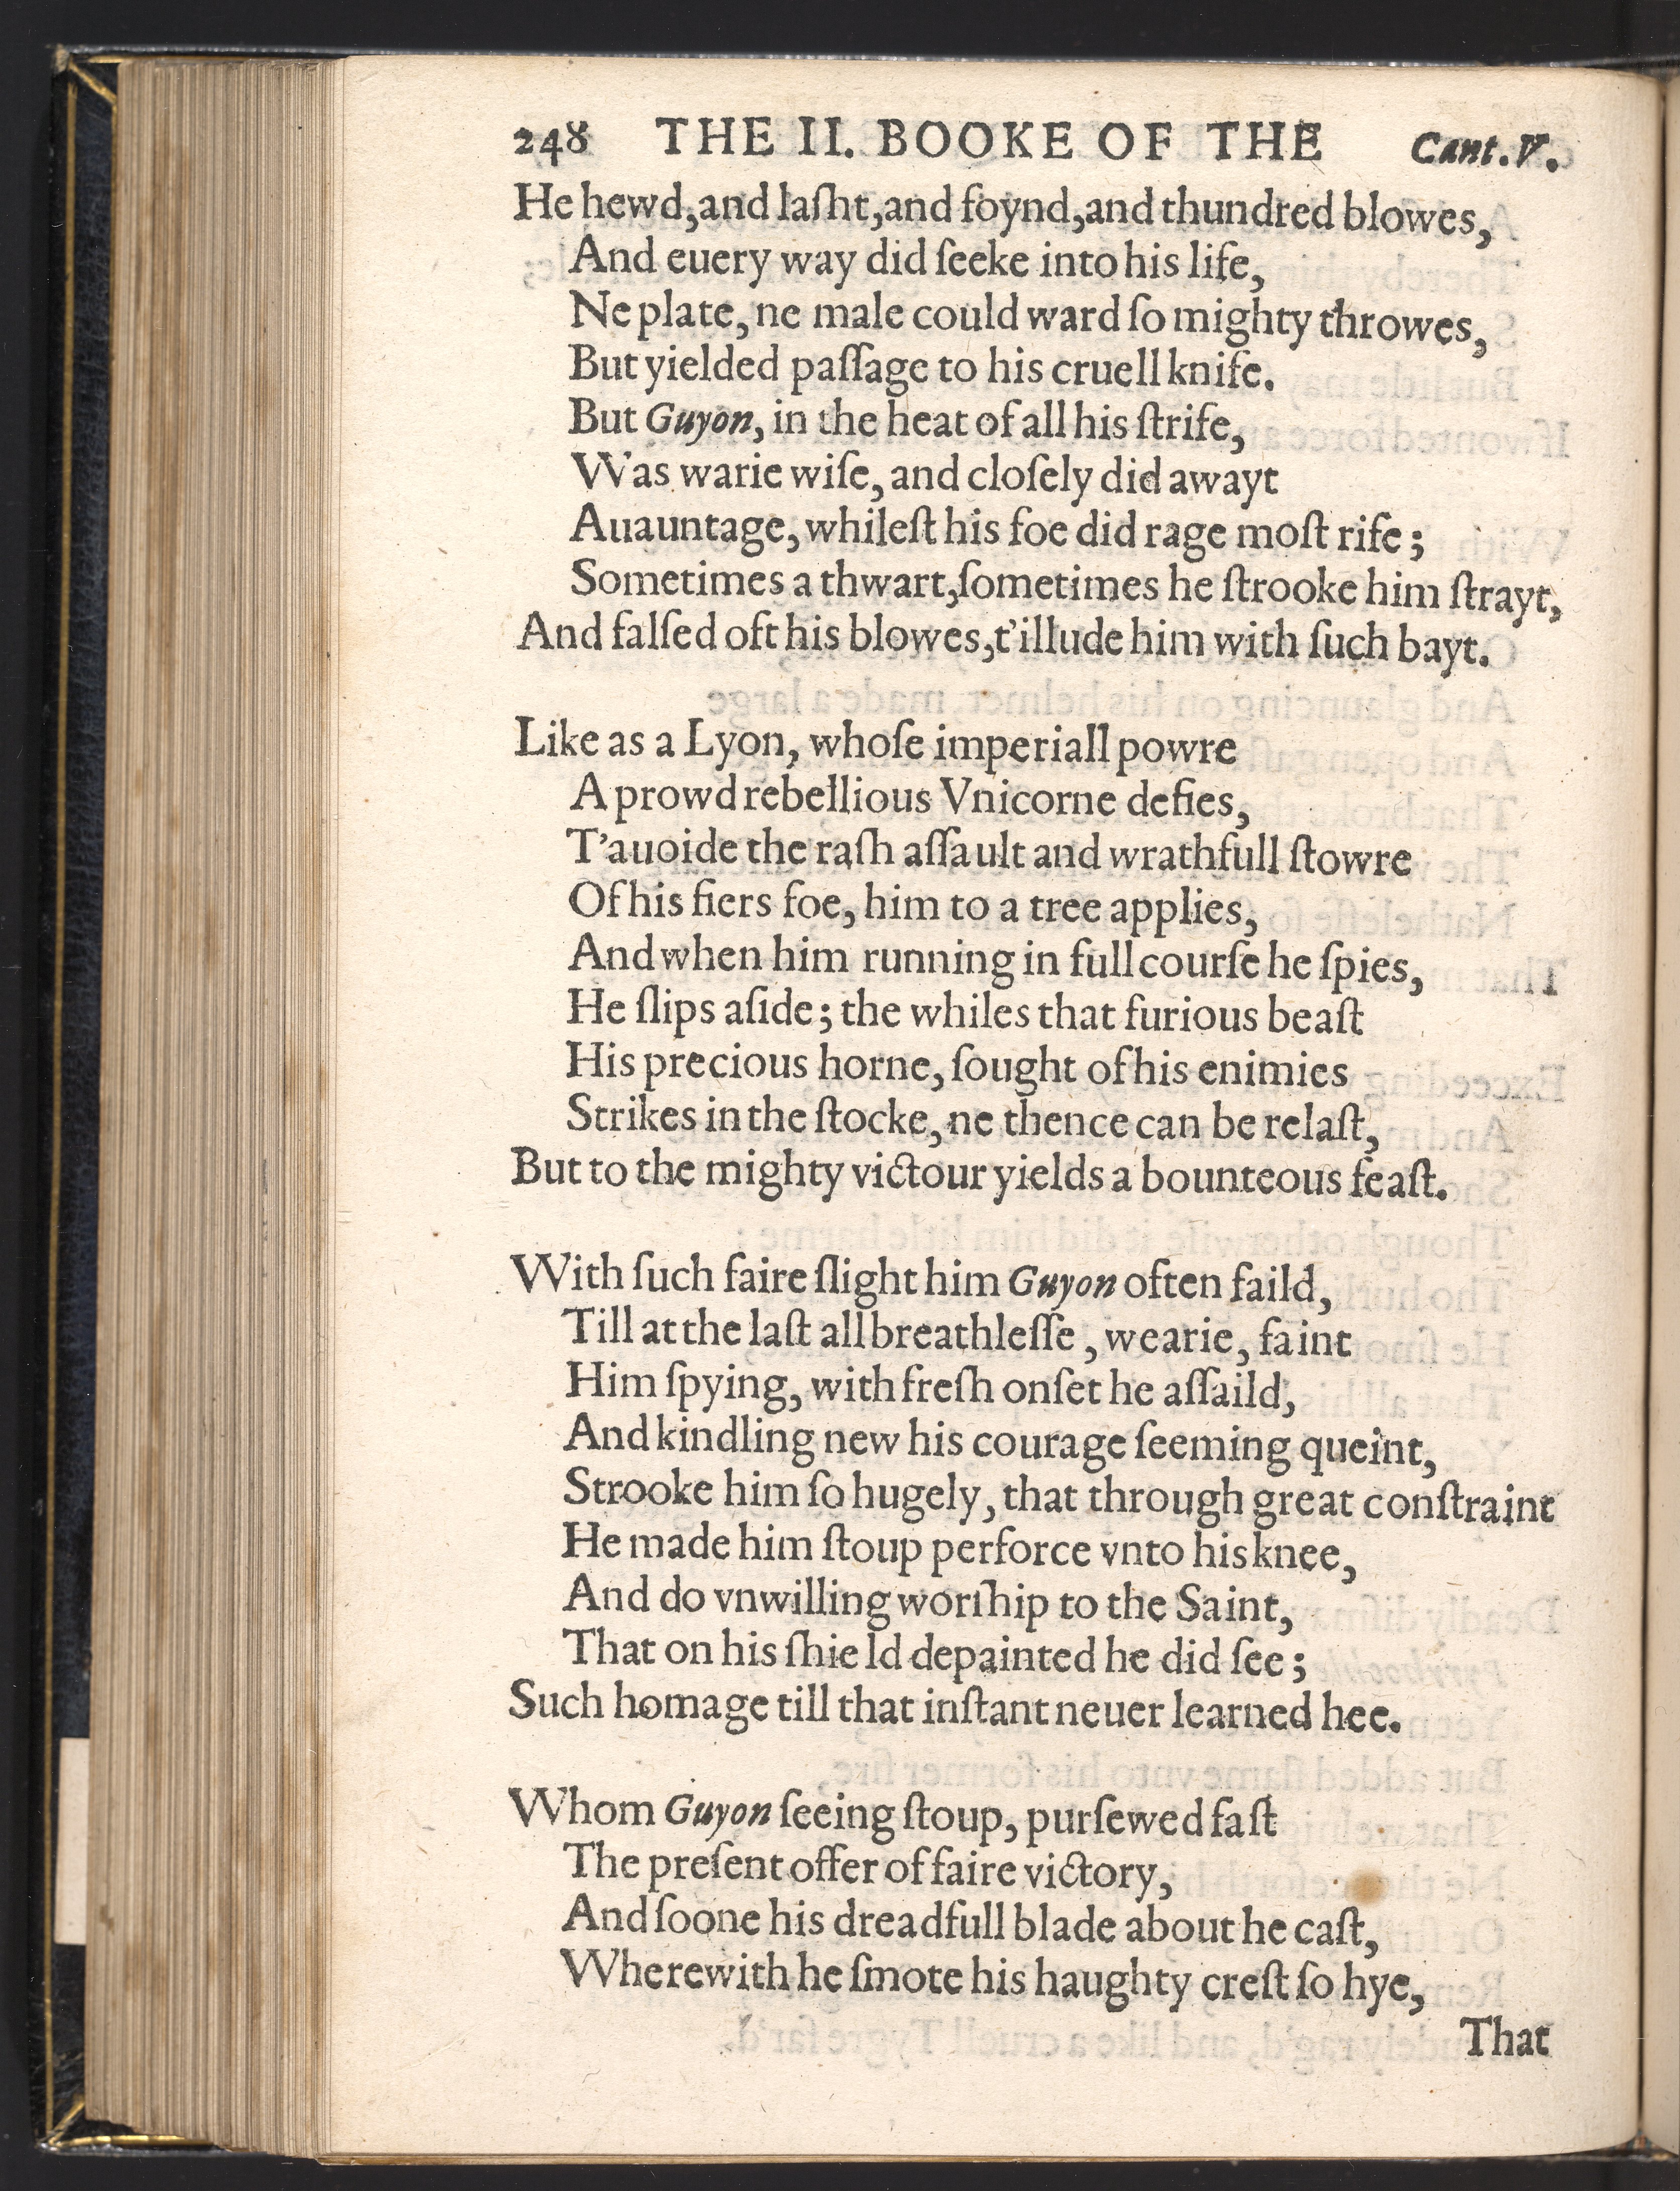 248 THE II. BOOKE OF THE Cant. V.
He hewd, and laſht, and foynd, and thundred blowes,
And euery way did ſeeke into his life,
Ne plate, ne male could ward ſo mighty throwes,
But yielded paſſage to his cruell knife.
But Guyon, in the heat of all his ſtrife,
Was warie wiſe, and cloſely did awayt
Auauntage, whileſt his foe did rage moſt rife;
Sometimes a thwart, ſometimes he ſtrooke him ſtrayt,
And falſed oft his blowes, t'illude him with ſuch bayt.
Like as a Lyon, whoſe imperiall powre
A prowd rebellious Vnicorne defies,
T'auoide the raſh aſſault and wrathfull ſtowre
Of his fiers foe, him to a tree applies,
And when him running in full courſe he ſpies,
He ſlips aſide; the whiles that furious beaſt
His precious horne, ſought of his enimies
Strikes in the ſtocke, ne thence can be relaſt,
But to the mighty victour yields a bounteous feaſt.
With ſuch faire ſlight him Guyon often faild,
Till at the laſt all breathleſſe, wearie, faint
Him ſpying, with freſh onſet he aſſaild,
And kindling new his courage ſeeming queint,
Strooke him ſo hugely, that through great conſtraint
He made him ſtoup perforce vnto his knee,
And do vnwilling worſhip to the Saint,
That on his ſhield depainted he did ſee;
Such homage till that inſtant neuer learned hee.
Whom Guyon ſeeing ſtoup, purſewed faſt
The preſent offer of faire victory,
And ſoone his dreadfull blade about he caſt,
Wherewith he ſmote his haughty creſt ſo hye,
That